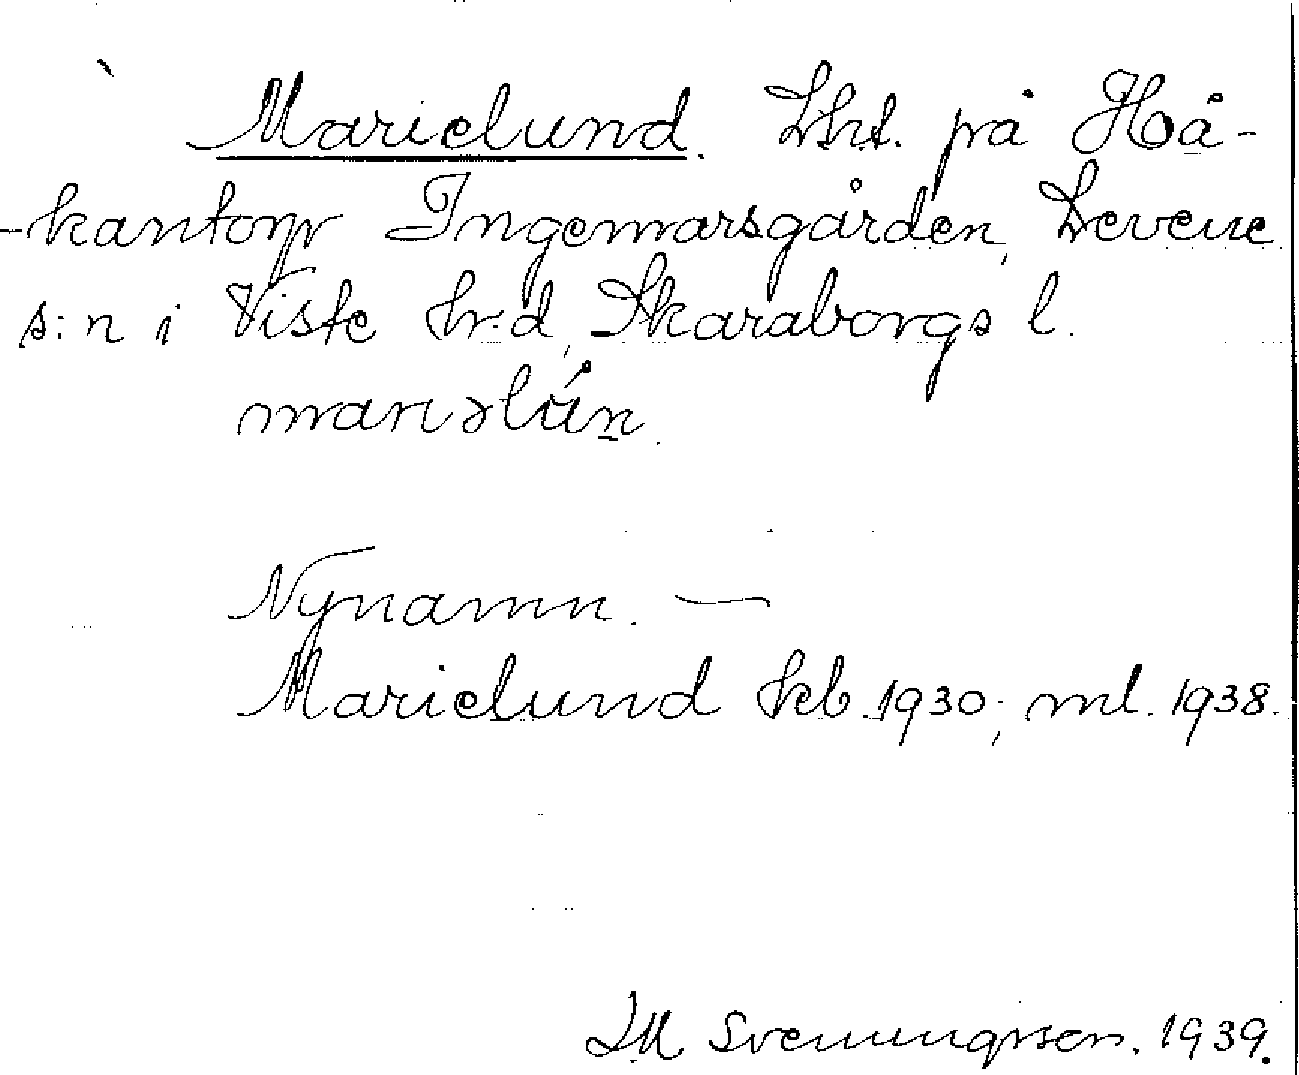 Marielund. Lht. på Hå-
-kantorp Ingemarsgården, Levene
s:n i Viste hr:d, Skaraborgs l.
mariəlún.
Nynamn. —
Marielund kb. 1930; ml. 1938.
IM Svenungsson. 1939.